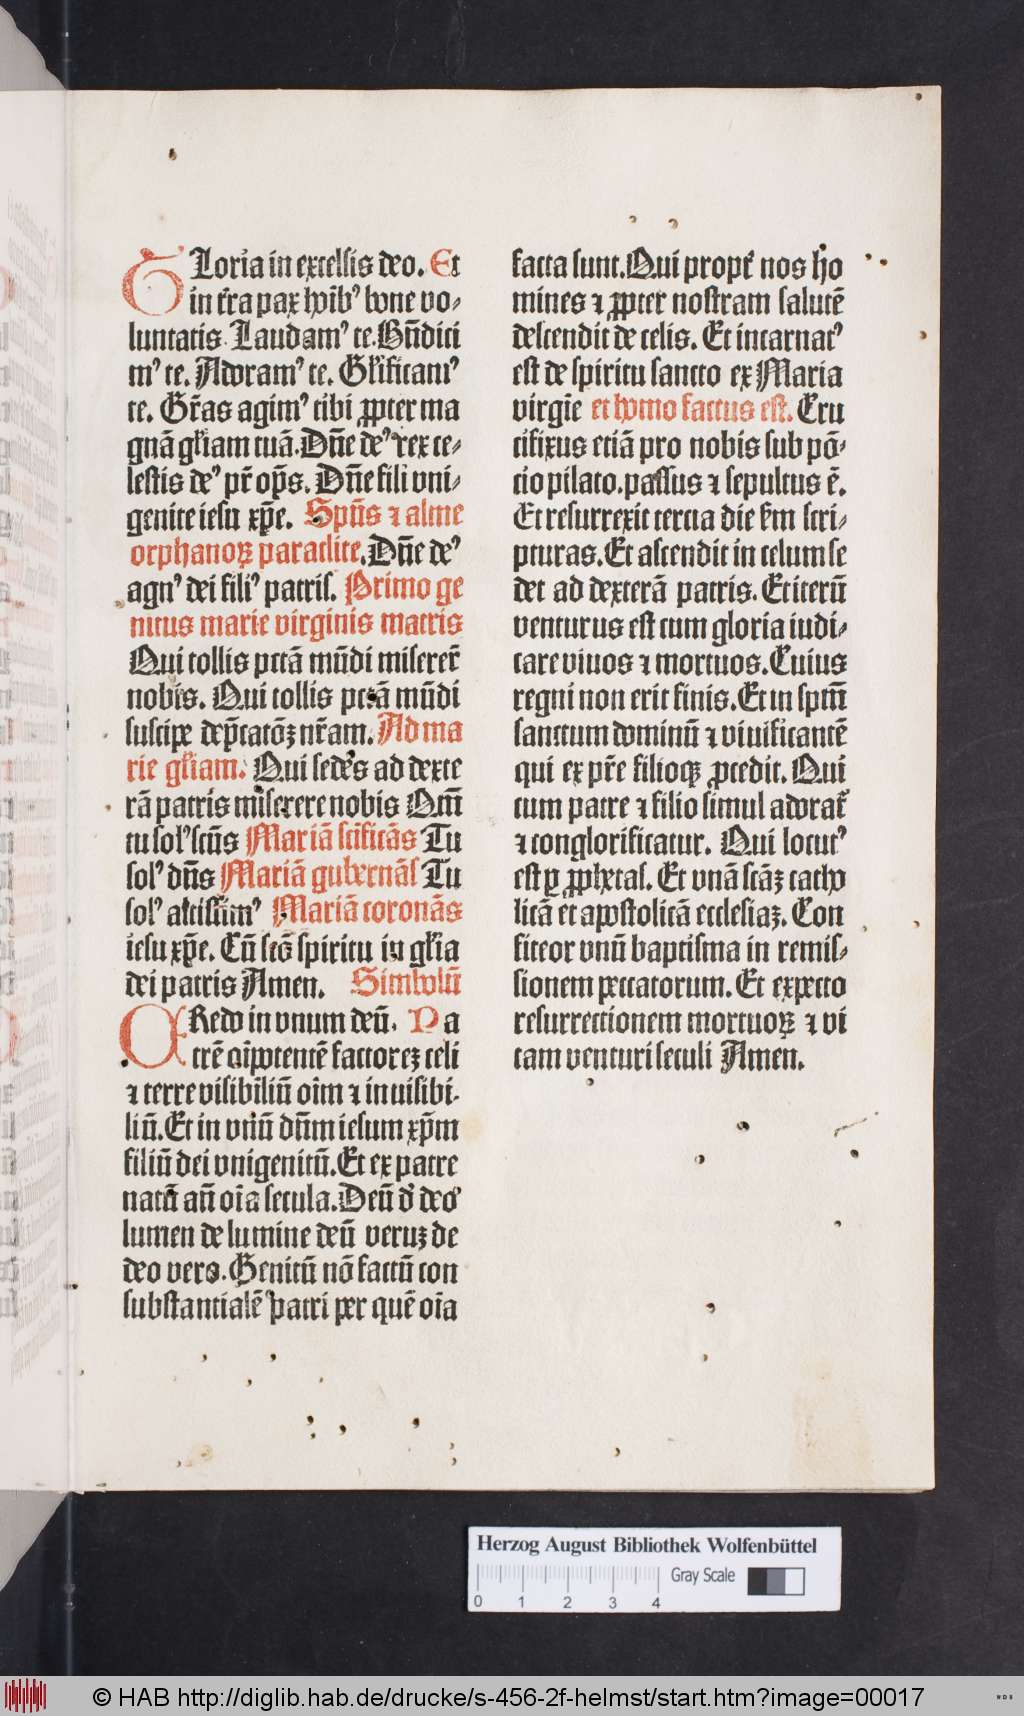 GLoria in excelsis deo. Et
in tr̃a pax hoĩbꝰ bone vo-
luntatis. Laudamꝰ te. Bñdici
mꝰ te. Adoramꝰ te. Gl̃ificamꝰ
te. Gr̃as agimꝰ tibi ꝓpter ma
gnã gl̃iam tuã. Dñe deꝰ rex ce-
lestis deꝰ pr̃ op̃s. Dñe fili vni-
genite iesu xp̃e. Sp̃ũs ⁊ alme
orphanoꝝ paraclite. Dñe deꝰ
agnꝰ dei filiꝰ patris. Primo ge
nitus marie virginis matris
Qui tollis pctã mũdi miserer̃
nobis. Qui tollis pctã mũdi
suscipe dep̃catõꝫ nr̃am. Ad ma
rie gl̃iam. Qui sedes ad dexte
rã patris miserere nobis Qm̃
tu solꝰ scũs Mariã scĩficãs Tu
solꝰ dñs Mariã gubernãs Tu
solꝰ altissimꝰ Mariã coronãs
iesu xp̃e. Cũ scõ spiritu in gl̃ia
dei patris Amen. Simbolũ
CRedo in vnum deũ. Pa
trẽ oĩpotentẽ factoreꝫ celi
⁊ terre visibiliũ oĩm ⁊ inuisibi-
liũ. Et in vnũ dñm iesum xp̃m
filiũ dei vnigenitũ. Et ex patre
natũ añ oĩa secula. Deũ d̃ deo
lumen de lumine deũ veruꝫ de
deo vero. Genitũ nõ factũ con
substantialẽ patri per quẽ oĩa
facta sunt. Qui propt̃ nos ho
mines ⁊ ꝓpter nostram salutẽ
descendit de celis. Et incarnatꝰ
est de spiritu sancto ex Maria
virgĩe et homo factus est. Cru
cifixus etiã pro nobis sub põ-
cio pilato. passus ⁊ sepultus ẽ.
Et resurrexit tercia die s̃m scri-
pturas. Et ascendit in celum se
det ad dexterã patris. Et iterũ
venturus est cum gloria iudi-
care viuos ⁊ mortuos. Cuius
regni non erit finis. Et in sp̃m̃
sanctum dominũ ⁊ viuificantẽ
qui ex pr̃e filioqꝫ ꝓcedit. Qui
cum patre ⁊ filio simul adorat̃
⁊ conglorificatur. Qui locutꝰ
est ꝑ ꝓphetas. Et vnã scãꝫ catho
licã et apostolicã ecclesiaꝫ. Con
fiteor vnũ baptisma in remis-
sionem peccatorum. Et expecto
resurrectionem mortuoꝝ ⁊ vi
tam venturi seculi Amen.
Herzog August Bibliothek Wolfenbüttel
Gray Scale
0 1 2 3 4
© HAB http://diglib.hab.de/drucke/s-456-2f-helmst/start.htm?image=00017